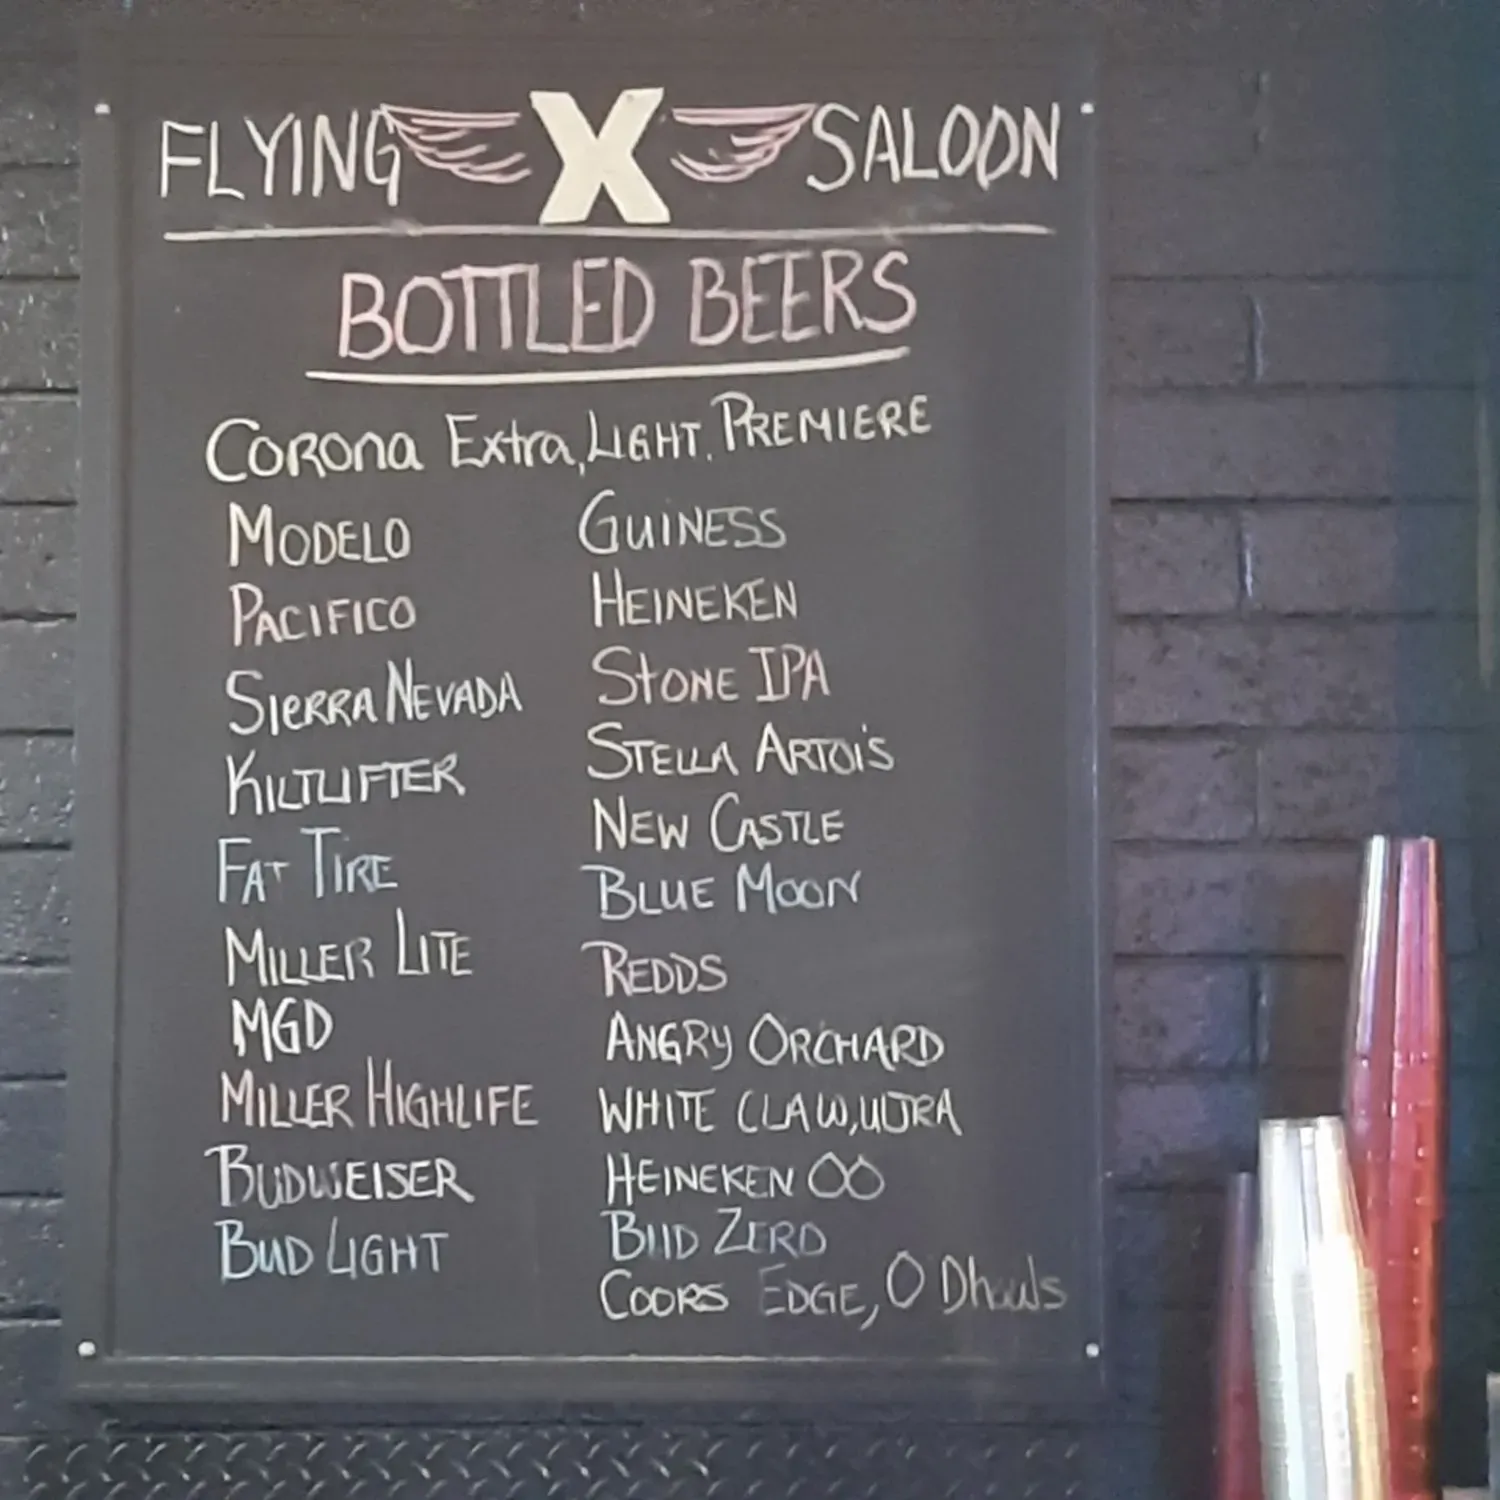 FLYING X SALOON
BOTTLED BEERS
CORONA Extra, LIGHT, PREMIERE
MODELO
PACIFICO
SIERRA NEVADA
KILTLIFTER
FAT TIRE
MILLER LITE
MGD
MILLER HIGHLIFE
BUDWEISER
BUD LIGHT
GUINESS
HEINEKEN
STONE IPA
STELLA ARTOI'S
NEW CASTLE
BLUE MOON
REDDS
ANGRY ORCHARD
WHITE CLAW, ULTRA
HEINEKEN OO
BUD ZERO
COORS EDGE, O Dhouls